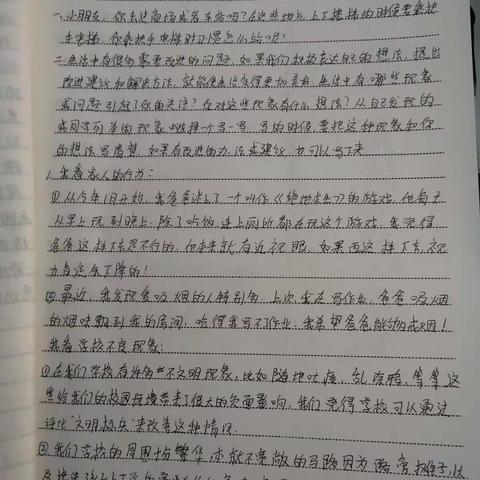 一、小朋友,你去过商场或者车站吗?在这些地方,上下楼梯的时候要乘扶
手电梯,你乘扶手电梯时习惯怎么站呢?
二、生活中有很多需要改进的问题,如果我们积极表达自己的想法,提出
改进建议和解决方法,就能使生活变得更加美好。生活中有哪些现象
或问题引起了你的关注?你对这些现象有什么想法?从自己发现的
或同学列举的现象中选择一个写一写。写的时候,要把这种现象和你
的想法写清楚。如果有改进的办法或建议,也可以写下来
1.我看家人的行为:
①从今年1月开始,我爸爸迷上了一个叫作《绝地求生》的游戏,他每天
从早上玩到晚上,除了吃饭、连上厕所都在玩这个游戏,我觉得
爸爸这样下去是不行的,他本来就有近视眼,如果再这样下去,视
力肯定会下降的!
②最近,我发现爸吸烟的人特别多,上次,我在写作业,爸爸吸烟
的烟味飘到我的房间,呛得我写不了作业,我希望爸爸能够戒烟!
我看学校不良现象:
①在我们学校有许多些不文明现象,比如随地吐痰、乱涂鸦,等等,这
些给我们的校园环境带来了很大的负面影响,我们觉得学校可以通过
评比“文明标兵”来改善这种情况。
②我们学校的周围
本就不宽敞的马路因为